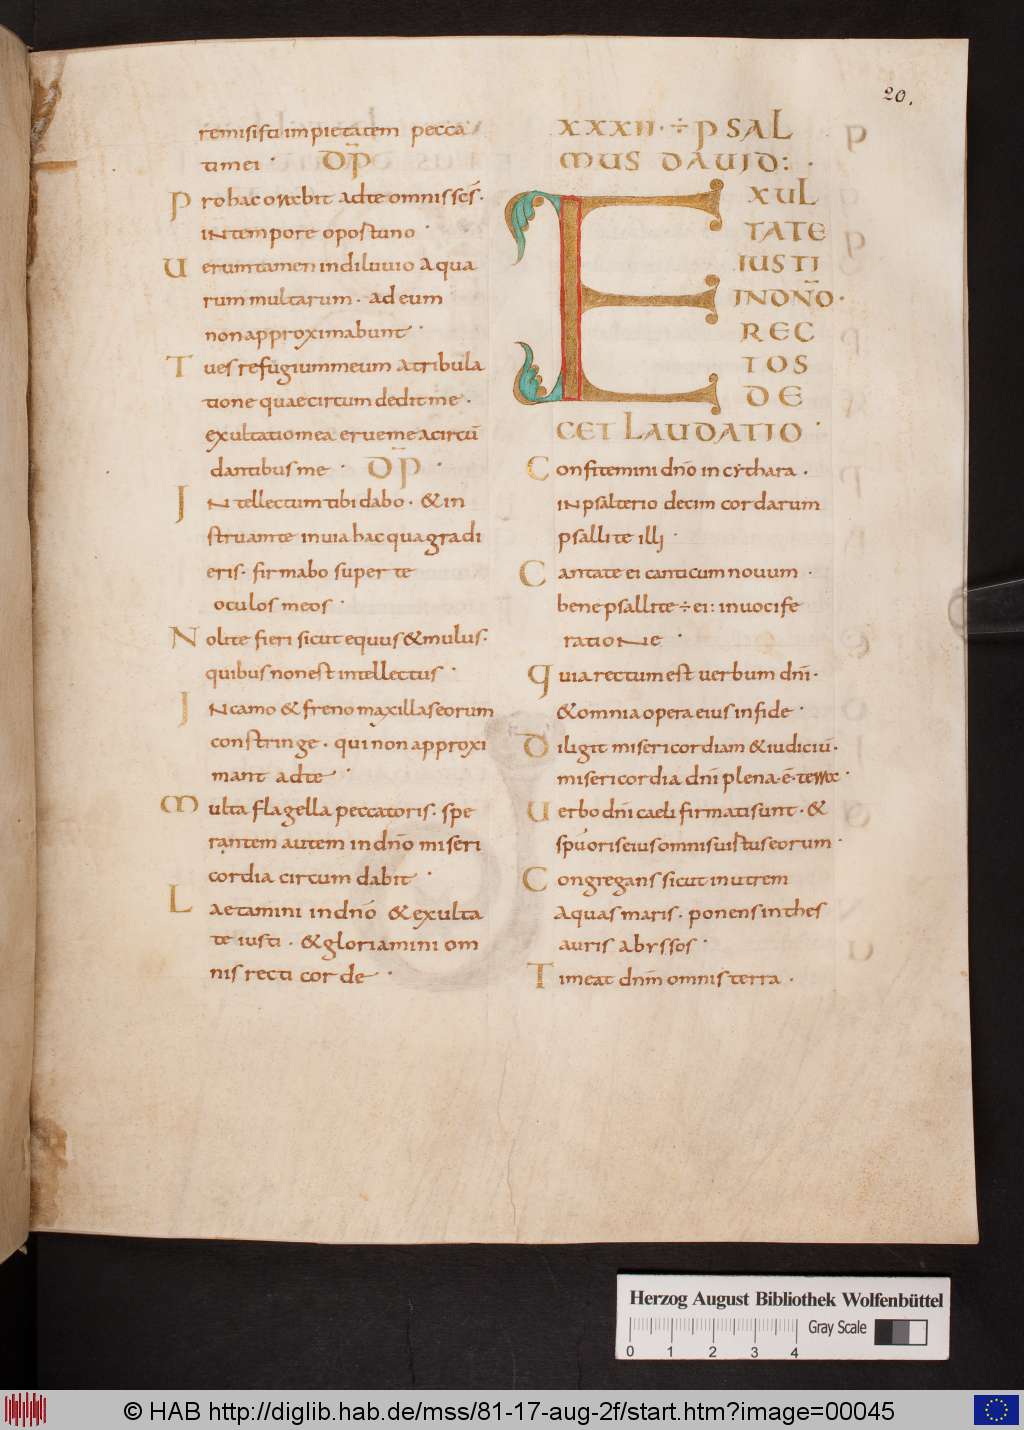 20.
remisisti impietatem pecca
ti mei · DP̄
Pro hac orabit ad te omnis scs̄·
in tempore oportuno ·
Ueruntamen in diluvio aqua
rum multarum · ad eum
non approximabunt ·
Tu es refugium meum a tribula
tione quae circumdedit me ·
exultatio mea erue me a circū
dantibus me · DP̄ ·
Intellectum tibi dabo · & in
struam te in uia hac qua gradi
eris · firmabo super te
oculos meos ·
Nolite fieri sicut equus & mulus·
quibus non est intellectus ·
In camo & freno maxillas eorum
constringe · qui non approxi
mant ad te ·
Multa flagella peccatoris · spe
rantem autem in dnō miseri
cordia circumdabit ·
Laetamini in dnō & exulta
te iusti · & gloriamini om
nis recti corde ·
XXXII · ÷ PSAL
MUS DAUID: ·
EXUL
TATE
IUSTI
IN DNŌ·
REC
TOS
DE
CET LAUDATIO ·
Confitemini dnō in cythara ·
in psalterio decim cordarum
psallite illi ·
Cantate ei canticum nouum ·
bene psallite ÷ ei: in uocife
ratione ·
Quia rectum est uerbum dnī·
& omnia opera eius in fide ·
Diligit misericordiam & iudiciū·
misericordia dnī plena·ē·terra ·
Uerbo dnī caeli firmati sunt · &
spū oris eius omnis uirtus eorum ·
Congregans sicut in utrem
aquas maris · ponens in thes
auris abyssos ·
Timeat dnm̄ omnis terra ·
Herzog August Bibliothek Wolfenbüttel
Gray Scale
0 1 2 3 4
© HAB http://diglib.hab.de/mss/81-17-aug-2f/start.htm?image=00045